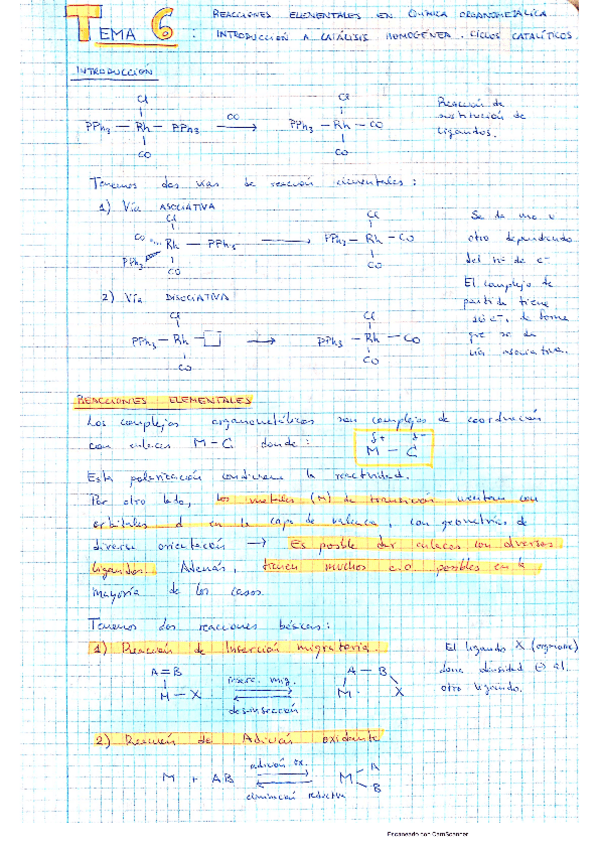 TEMA 6
REACCIONES ELEMENTALES EN QUÍMICA ORGANOMETÁLICA.
INTRODUCCIÓN A CATÁLISIS HOMOGÉNEA. CICLOS CATALÍTICOS.
INTRODUCCIÓN
Cl
PPh3 — Rh — PPh3
CO
CO
Cl
PPh3 — Rh — CO
CO
Reacción de
sustitución de
ligandos.
Tenemos dos vías de reacción elementales:
1) Vía ASOCIATIVA
Cl
CO
Rh — PPh3
PPh3
CO
Cl
PPh3 — Rh — CO
CO
Se da una u
otra dependiendo
del nº de e-
El complejo de
partida tiene
16 e-, de forma
que se da
vía asociativa.
2) Vía DISOCIATIVA
Cl
PPh3 — Rh —
CO
Cl
PPh3 — Rh — CO
CO
REACCIONES ELEMENTALES
Los complejos organometálicos son complejos de coordinación
con enlaces M-C donde:
δ+ δ-
M — C
Esta polarización condiciona la reactividad.
Por otro lado, los metales (M) de transición cuentan con
orbitales d en la capa de valencia, con geometrías de
diversa orientación → Es posible dar enlaces con diversos
ligandos. Además, tienen muchos e.o posibles en la
mayoría de los casos.
Tenemos dos reacciones básicas:
1) Reacción de Inserción migratoria.
A=B
M — X
inserc. mig.
desinserción
A — B
M
X
El ligando X
dona densidad (-) al
otro ligando.
2) Reacción de Adición oxidante
M + AB
adición ox.
eliminación reductiva
M
A
B
Escaneado con CamScanner